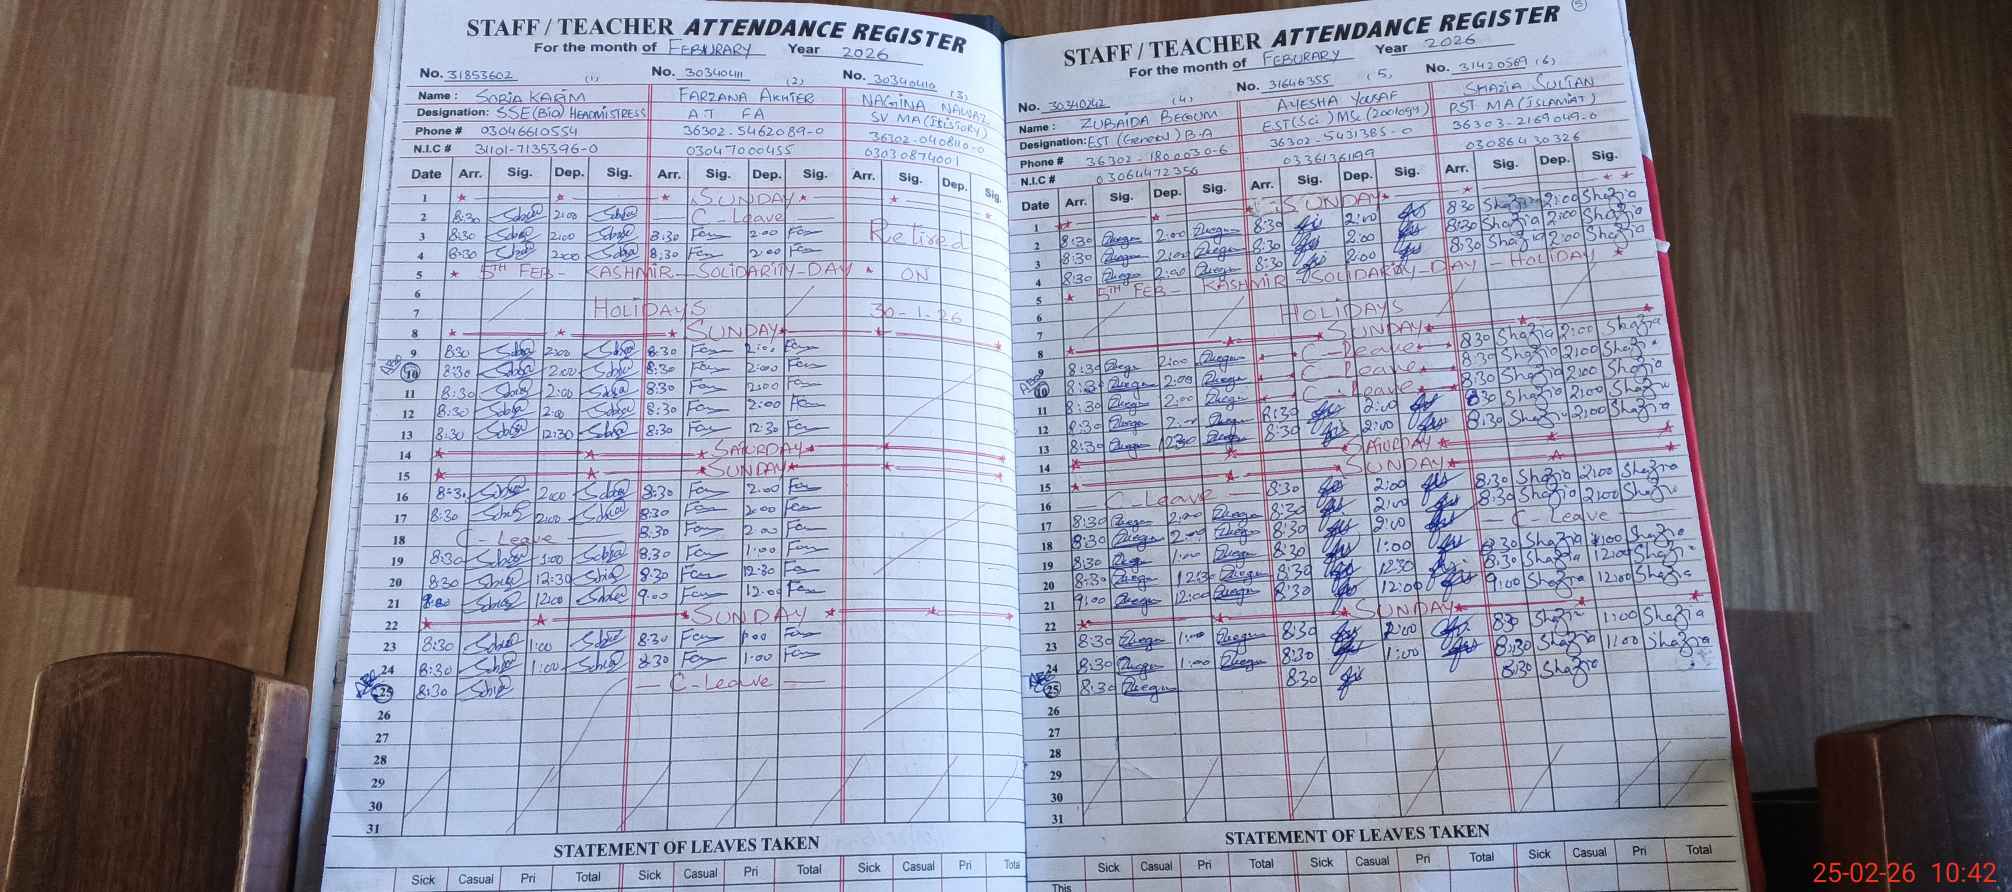 STAFF / TEACHER ATTENDANCE REGISTER
For the month of FEBURARY Year 2026
No. 31853602 (1) No. 30340411 (2) No. 30340410 (3)
Name : SOBIA KARIM FARZANA AKHTER NAGINA NAWAZ
Designation: SSE(Bio) HEADMISTRESS A.T FA SV MA(HISTORY)
Phone # 03046610554 36302-5462089-0 36302-0408110-0
N.I.C # 31101-7135396-0 03047000455 03030874001
Date Arr. Sig. Dep. Sig. Arr. Sig. Dep. Sig. Arr. Sig. Dep. Sig.
1 SUNDAY
2 8:30 Sobia 2:00 Sobia C-Leave
3 8:30 Sobia 2:00 Sobia 8:30 Far 2:00 Far Retired
4 8:30 Sobia 2:00 Sobia 8:30 Far 2:00 Far
5 5TH FEB- KASHMIR-SOLIDARITY-DAY ON
6
7 HOLIDAYS 30-1-26
8 SUNDAY
9 8:30 Sobia 2:00 Sobia 8:30 Far 2:00 Far
10 8:30 Sobia 2:00 Sobia 8:30 Far 2:00 Far
11 8:30 Sobia 2:00 Sobia 8:30 Far 2:00 Far
12 8:30 Sobia 2:00 Sobia 8:30 Far 2:00 Far
13 8:30 Sobia 12:30 Sobia 8:30 Far 12:30 Far
14 SATURDAY
15 SUNDAY
16 8:30 Sobia 2:00 Sobia 8:30 Far 2:00 Far
17 8:30 Sobia 2:00 Sobia 8:30 Far 2:00 Far
18 C-Leave 8:30 Far 2:00 Far
19 8:30 Sobia 1:00 Sobia 8:30 Far 1:00 Far
20 8:30 Sobia 12:30 Sobia 8:30 Far 12:30 Far
21 9:00 Sobia 12:00 Sobia 9:00 Far 12:00 Far
22 SUNDAY
23 8:30 Sobia 1:00 Sobia 8:30 Far 1:00 Far
24 8:30 Sobia 1:00 Sobia 8:30 Far 1:00 Far
25 8:30 Sobia C-Leave
26
27
28
29
30
31
STATEMENT OF LEAVES TAKEN
Sick Casual Pri Total Sick Casual Pri Total Sick Casual Pri Total
5
STAFF / TEACHER ATTENDANCE REGISTER
For the month of FEBURARY Year 2026
No. 30340242 (4) No. 31646355 (5) No. 31420569 (6)
Name : ZUBAIDA BEGUM AYESHA YOUSAF SHAZIA SULTAN
Designation: EST (General) B.A EST(Sci) MSC(Zoology) PST MA(ISLAMIAT)
Phone # 36302-1800030-6 36302-5431385-0 36303-2169049-0
N.I.C # 03064472356 03361361199 03086430326
Date Arr. Sig. Dep. Sig. Arr. Sig. Dep. Sig. Arr. Sig. Dep. Sig.
1 SUNDAY
2 8:30 2:00 8:30 2:00 8:30 Shazia 2:00 Shazia
3 8:30 2:00 8:30 2:00 8:30 Shazia 2:00 Shazia
4 8:30 2:00 8:30 2:00 8:30 Shazia 2:00 Shazia
5 5TH FEB- KASHMIR-SOLIDARITY-DAY-HOLIDAY
6
7 HOLIDAYS
8 SUNDAY
9 8:30 2:00 C-Leave 8:30 Shazia 2:00 Shazia
10 8:30 2:00 C-Leave 8:30 Shazia 2:00 Shazia
11 8:30 2:00 C-Leave 8:30 Shazia 2:00 Shazia
12 8:30 2:00 8:30 2:00 8:30 Shazia 2:00 Shazia
13 8:30 12:30 8:30 2:00 8:30 Shazia 2:00 Shazia
14 SATURDAY
15 SUNDAY
16 C-Leave 8:30 2:00 8:30 Shazia 2:00 Shazia
17 8:30 2:00 8:30 2:00 8:30 Shazia 2:00 Shazia
18 8:30 2:00 8:30 2:00 C-Leave
19 8:30 1:00 8:30 1:00 8:30 Shazia 1:00 Shazia
20 8:30 12:30 8:30 12:30 8:30 Shazia 12:00 Shazia
21 9:00 12:00 8:30 12:00 9:00 Shazia 12:00 Shazia
22 SUNDAY
23 8:30 1:00 8:30 2:00 8:30 Shazia 1:00 Shazia
24 8:30 1:00 8:30 1:00 8:30 Shazia 1:00 Shazia
25 8:30 8:30 8:30 Shazia
26
27
28
29
30
31
STATEMENT OF LEAVES TAKEN
Sick Casual Pri Total Sick Casual Pri Total Sick Casual Pri Total
This
25-02-26 10:42